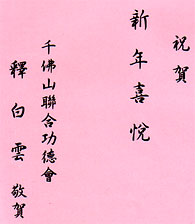 祝賀
新年喜悅
千佛山聯合功德會
釋白雲敬賀